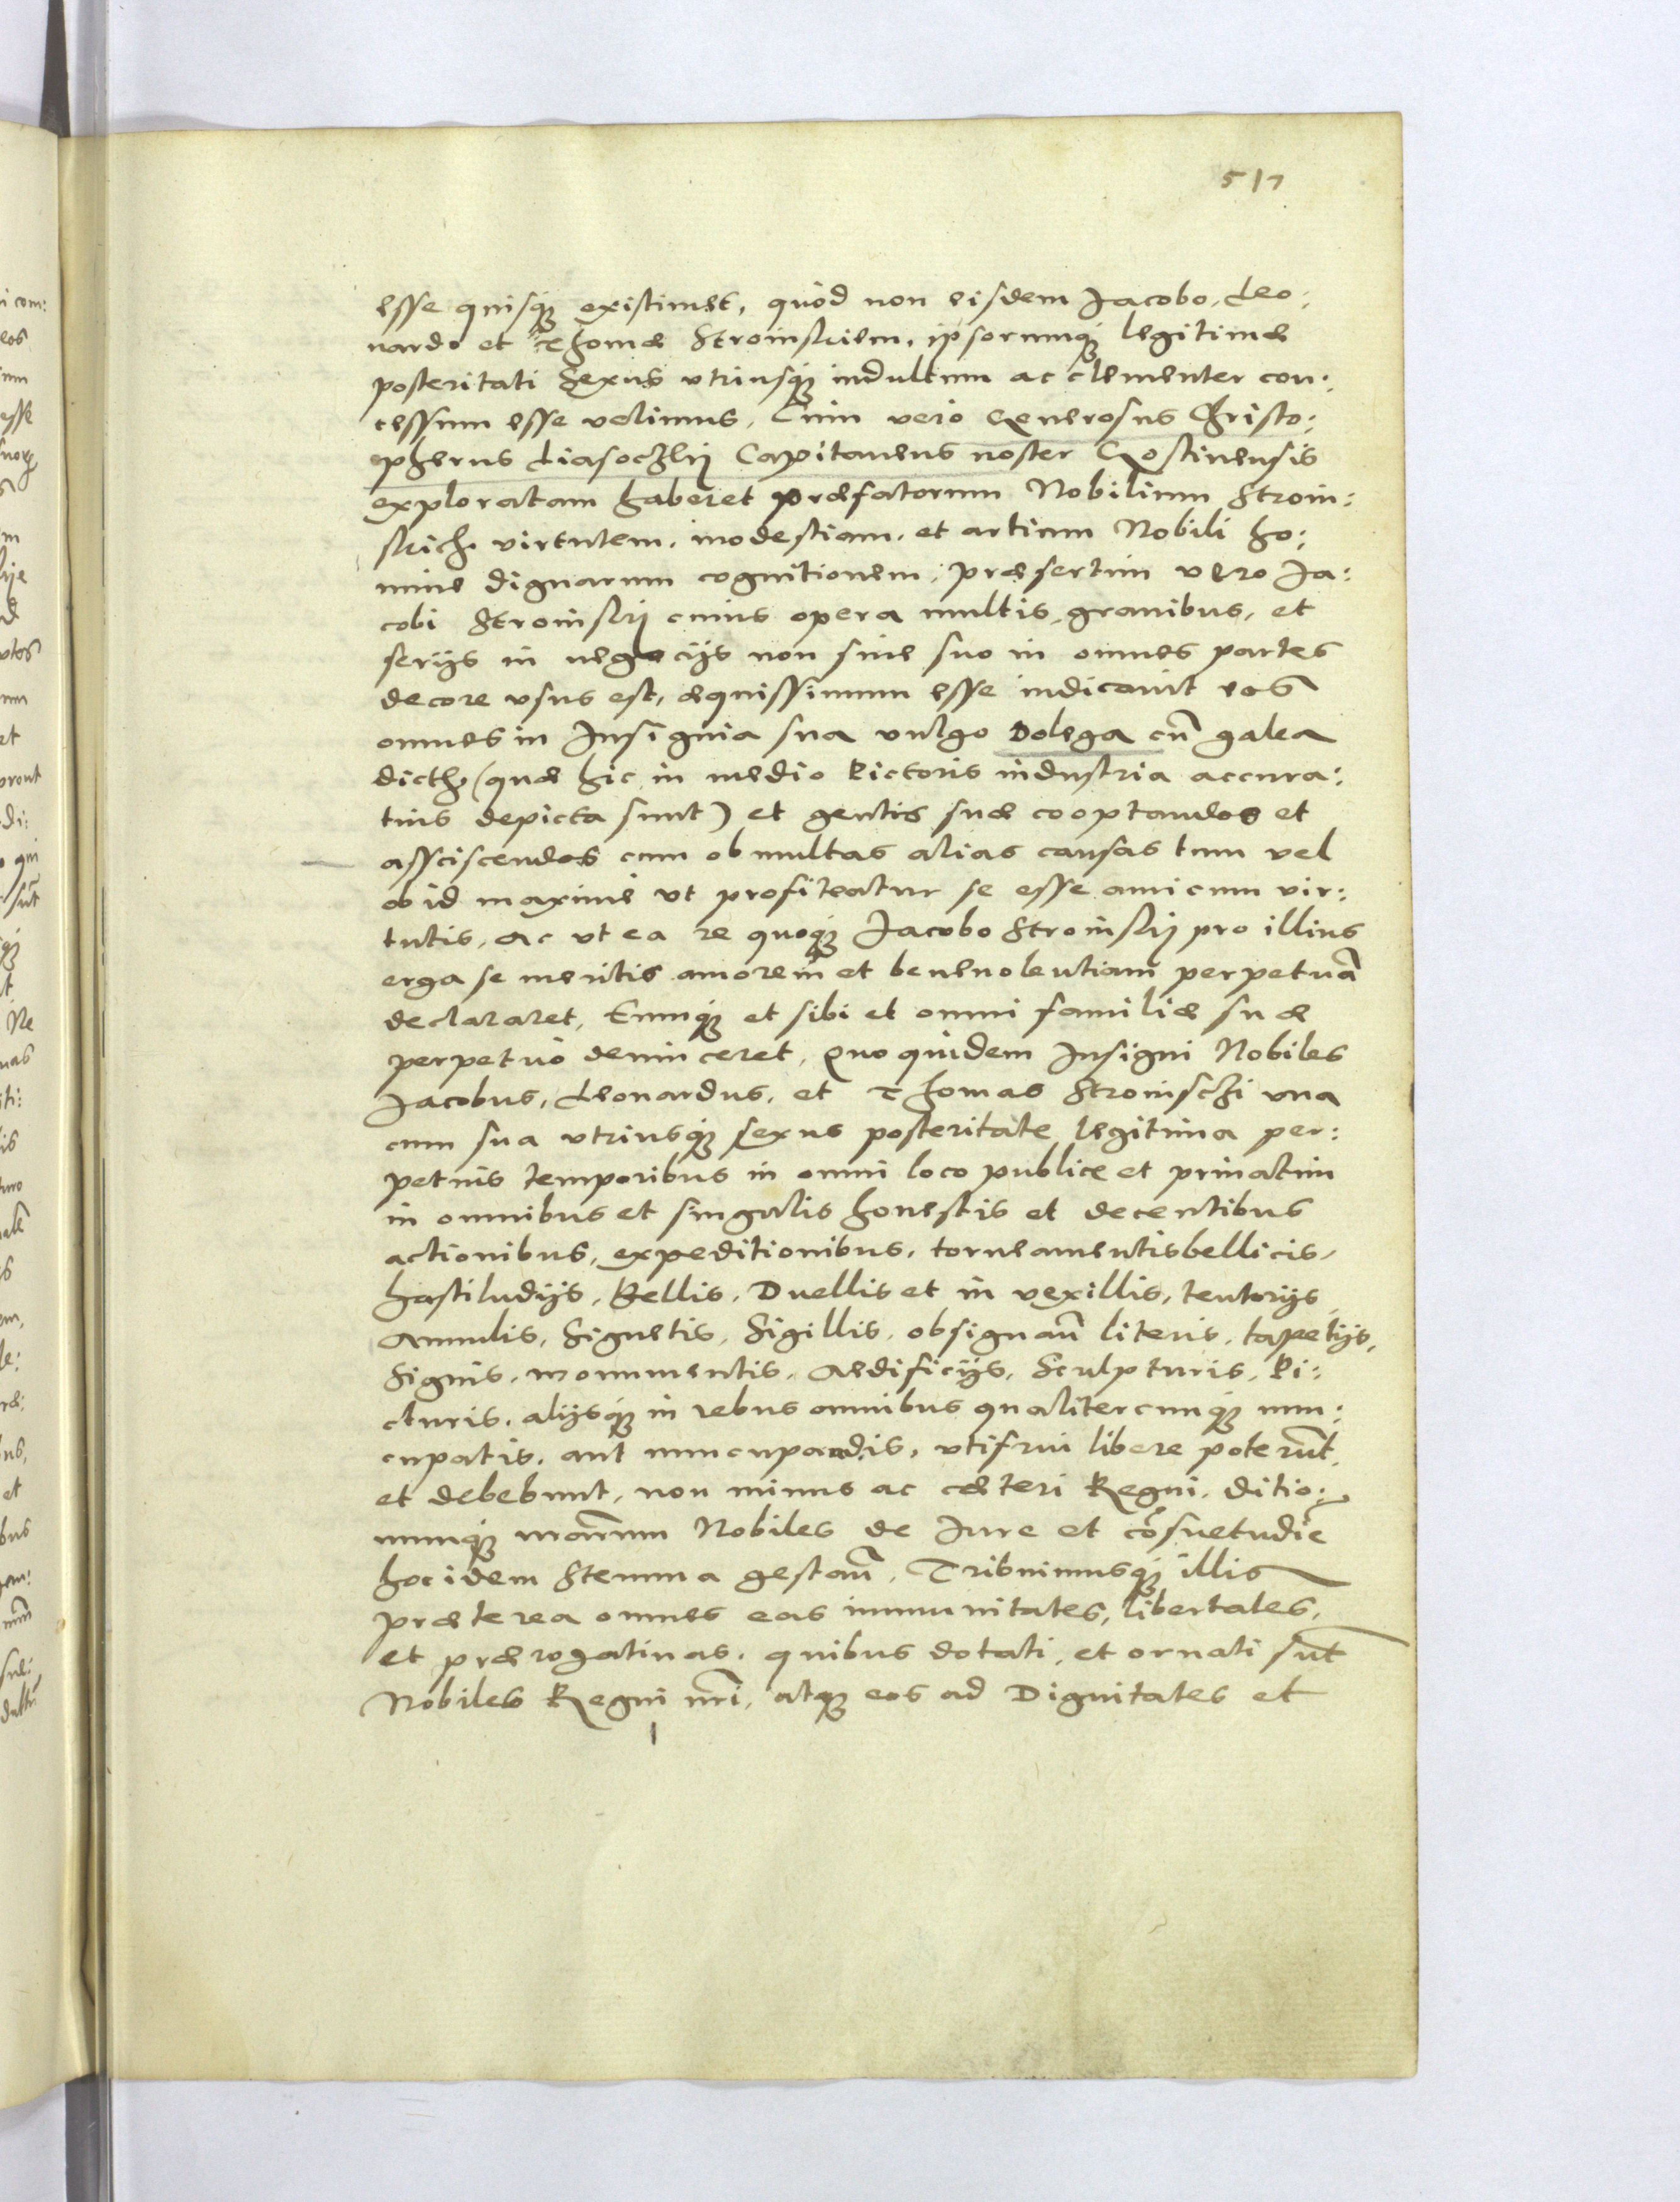 517
esse quisq existimet, quod non eisdem Jacobo, Leo:
nardo et Thomæ Stroinskiem, ipsorumq legitimæ
posteritati sexus vtriusq indultum ac clementer con:
cessum esse velimus, Cum vero Generosus Christo:
pherus Liasoczkij Capitaneus noster Gostinensis
exploratam haberet præfatorum Nobilium Stroin:
skich virtutem, modestiam, et artium Nobili ho:
mine dignarum cognitionem, præsertim vero Ja:
cobi Stroinskij cuius opera multis, grauibus, et
serijs in negocijs non sine suo in omnes partes
decore vsus est, æquissimum esse iudicauit eos
omnes in Insignia sua vulgo Dolega cũ galea
dicta (quæ hic in medio Pictoris industria accura:
tius depicta sunt) et gentis suæ cooptandos et
assciscendos cum ob multas alias causas tum vel
ob id maxime vt profiteatur se esse amicum vir:
tutis, ac vt ea re quoq Jacobo Stroinskij pro illius
erga se meritis amorem et beneuolentiam perpetuã
declararet, Eumq et sibi et omni familiæ suæ
perpetuo deuinceret, Quo quidem Insigni Nobiles
Jacobus, Leonardus, et Thomas Stroinschi vna
cum sua vtriusq sexus posteritate legitima per:
petuis temporibus in omni loco publice et priuatim
in omnibus et singulis honestis et decentibus
actionibus, expeditionibus, torneamentis bellicis,
hastiludijs, Bellis, Duellis et in vexillis, tentorijs
Annulis, Signetis, Sigillis, obsignañ literis, tapetijs,
Signis, monumentis, Aedificijs, Sculpturis, Pi:
cturis, alijsq in rebus omnibus qualitercunq nun:
cupatis, aut nuncupandis, vtifrui libere poterũt,
et debebunt, non minus ac cæteri Regni, ditio:
numq nrarum Nobiles de Jure et cõsuetudiẽ
hoc idem Stemma gestañ, Tribuimusq illis
præterea omnes eas immunitates, libertates,
et prærogatiuas, quibus dotati, et ornati sũt
Nobiles Regni nri, atq eos ad Dignitates et